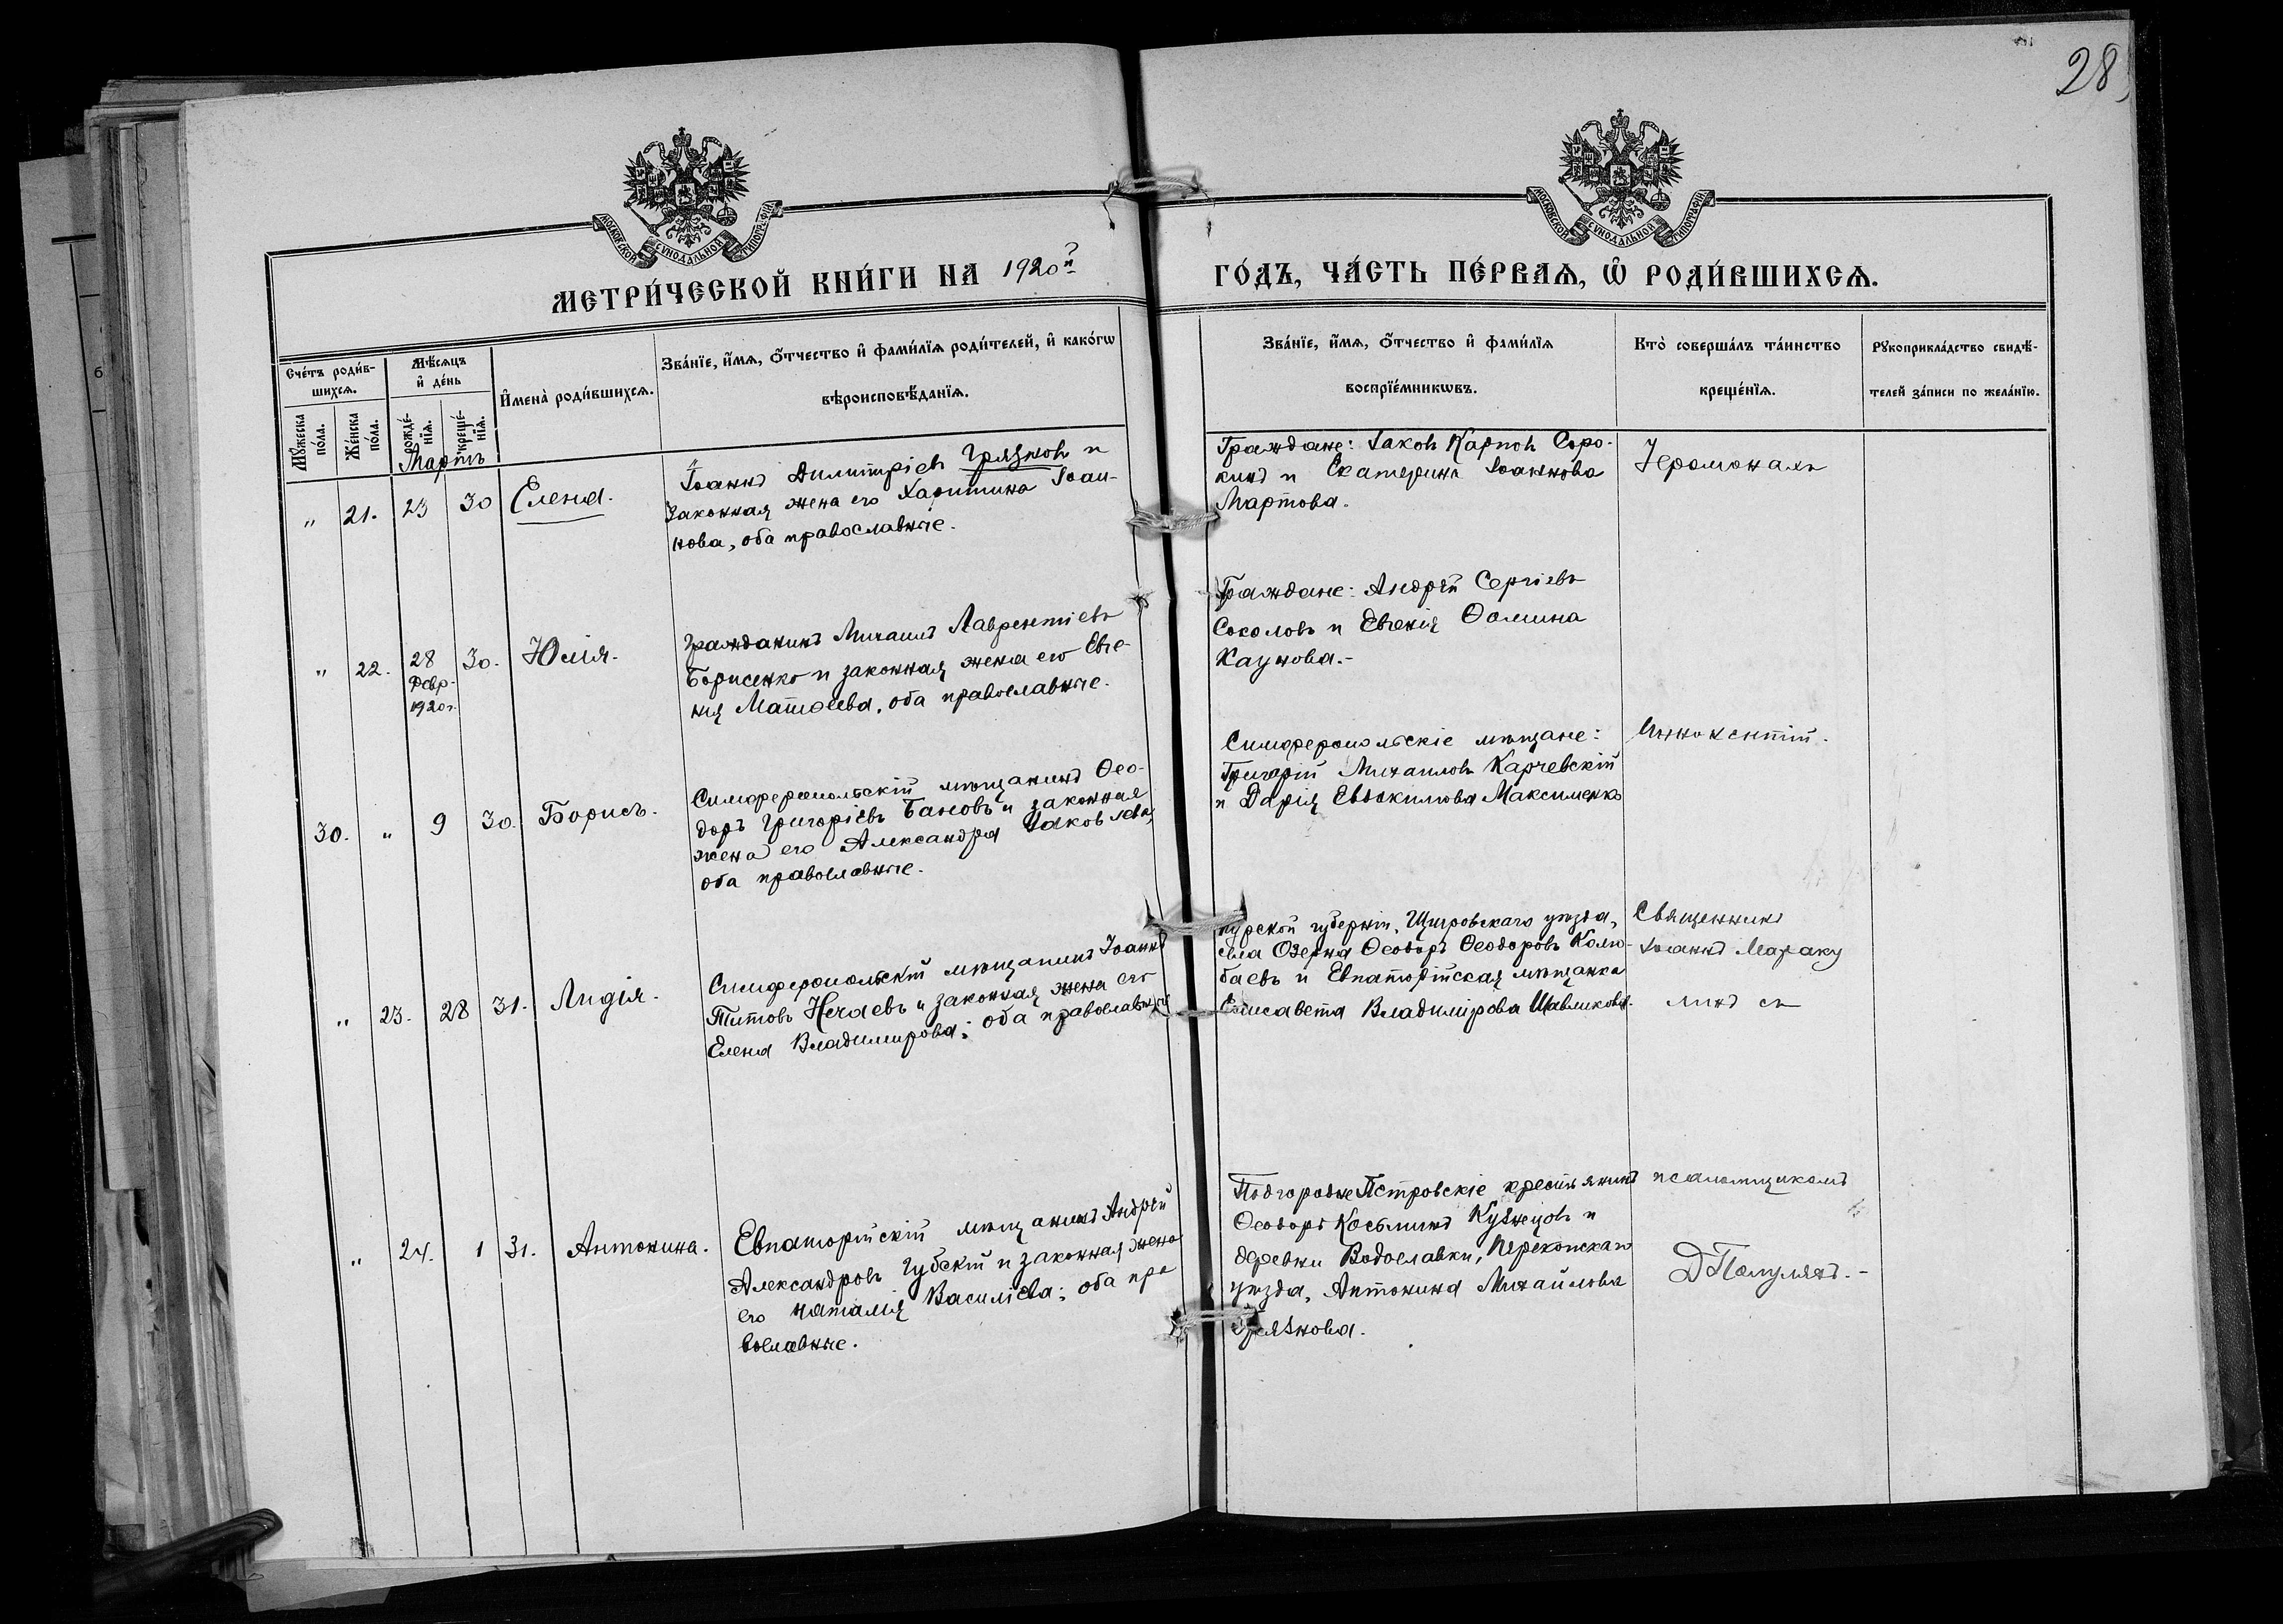 28
МОСКОВСКОЙ СѴНОДАЛЬНОЙ ТИПОГРАФІИ
МОСКОВСКОЙ СѴНОДАЛЬНОЙ ТИПОГРАФІИ
МЕТРИ́ЧЕСКОЙ КНИ́ГИ НА 1920й
ГО́ДЪ, ЧА́СТЬ ПЕ́РВАѦ, Ѡ҆ РОДИ́ВШИХСѦ.
Сче́тъ роди́в-
шихсѧ.
Мꙋ́жеска по́ла.
Же́нска по́ла.
Мѣ́сѧцъ
и҆ де́нь
рожде́-
нїѧ.
креще́-
нїѧ.
И҆мена̀ роди́вшихсѧ.
Зва́нїе, и҆́мѧ, ѻ҆́тчество и҆ фами́лїѧ роди́телей, и҆ како́гѡ
вѣроисповѣ́данїѧ.
Зва́нїе, и҆́мѧ, ѻ҆́тчество и҆ фами́лїѧ
воспрїе́мникѡвъ.
Кто̀ соверша́лъ та́инство
креще́нїѧ.
Рꙋкоприкла́дство свидѣ́-
телей за́писи по жела́нїю.
Мартъ
" 21. 23 30 Елена.
Іоаннъ Димитріевъ Грязновъ и
законная жена его Харитина Іоан-
нова, оба православные.
Граждане: Іаковъ Карповъ Соро-
кинъ и Екатерина Іоаннова
Мартова.
Іеромонахъ
" 22. 28 30. Юлія.
Февр.
1920г.
Гражданинъ Михаилъ Лаврентіевъ
Борисенко и законная жена его Евге-
нія Матѳеева, оба православные.
Граждане: Андрей Сергіевъ
Соколовъ и Евгенія Ѳомина
Каунова.-
30. " 9 30. Борисъ.
Симферопольскій мѣщанинъ Ѳео-
доръ Григоріевъ Бановъ и законная
жена его Александра Іаковлева,
оба православные.
Симферопольскіе мѣщане:
Григорій Михаиловъ Карчевскій
и Дарія Евдокимова Максименко
Иннокентій.
" 23. 28 31. Лидія.
Симферопольскій мѣщанинъ Іоаннъ
Титовъ Нечаевъ и законная жена его
Елена Владимирова; оба православные
Курской губерніи, Щигровскаго уѣзда,
села Озерна Ѳеодоръ Ѳеодоровъ Колю-
баевъ и Евпаторійская мѣщанка
Елисавета Владимірова Шавликова.
Священникъ
Іоаннъ Мараку
линъ съ
" 24. 1 31. Антонина.
Евпаторійскій мѣщанинъ Андрей
Александровъ Губскій и законная жена
его Наталія Василіева; оба пра
вославные.
Подгородне Петровскіе крестьянинъ
Ѳеодоръ Косьминъ Кузнецовъ и
деревни Водославки, Перекопскаго
уѣзда, Антонина Михайлова
Грязнова.
псаломщикомъ
Д Папулянъ.-